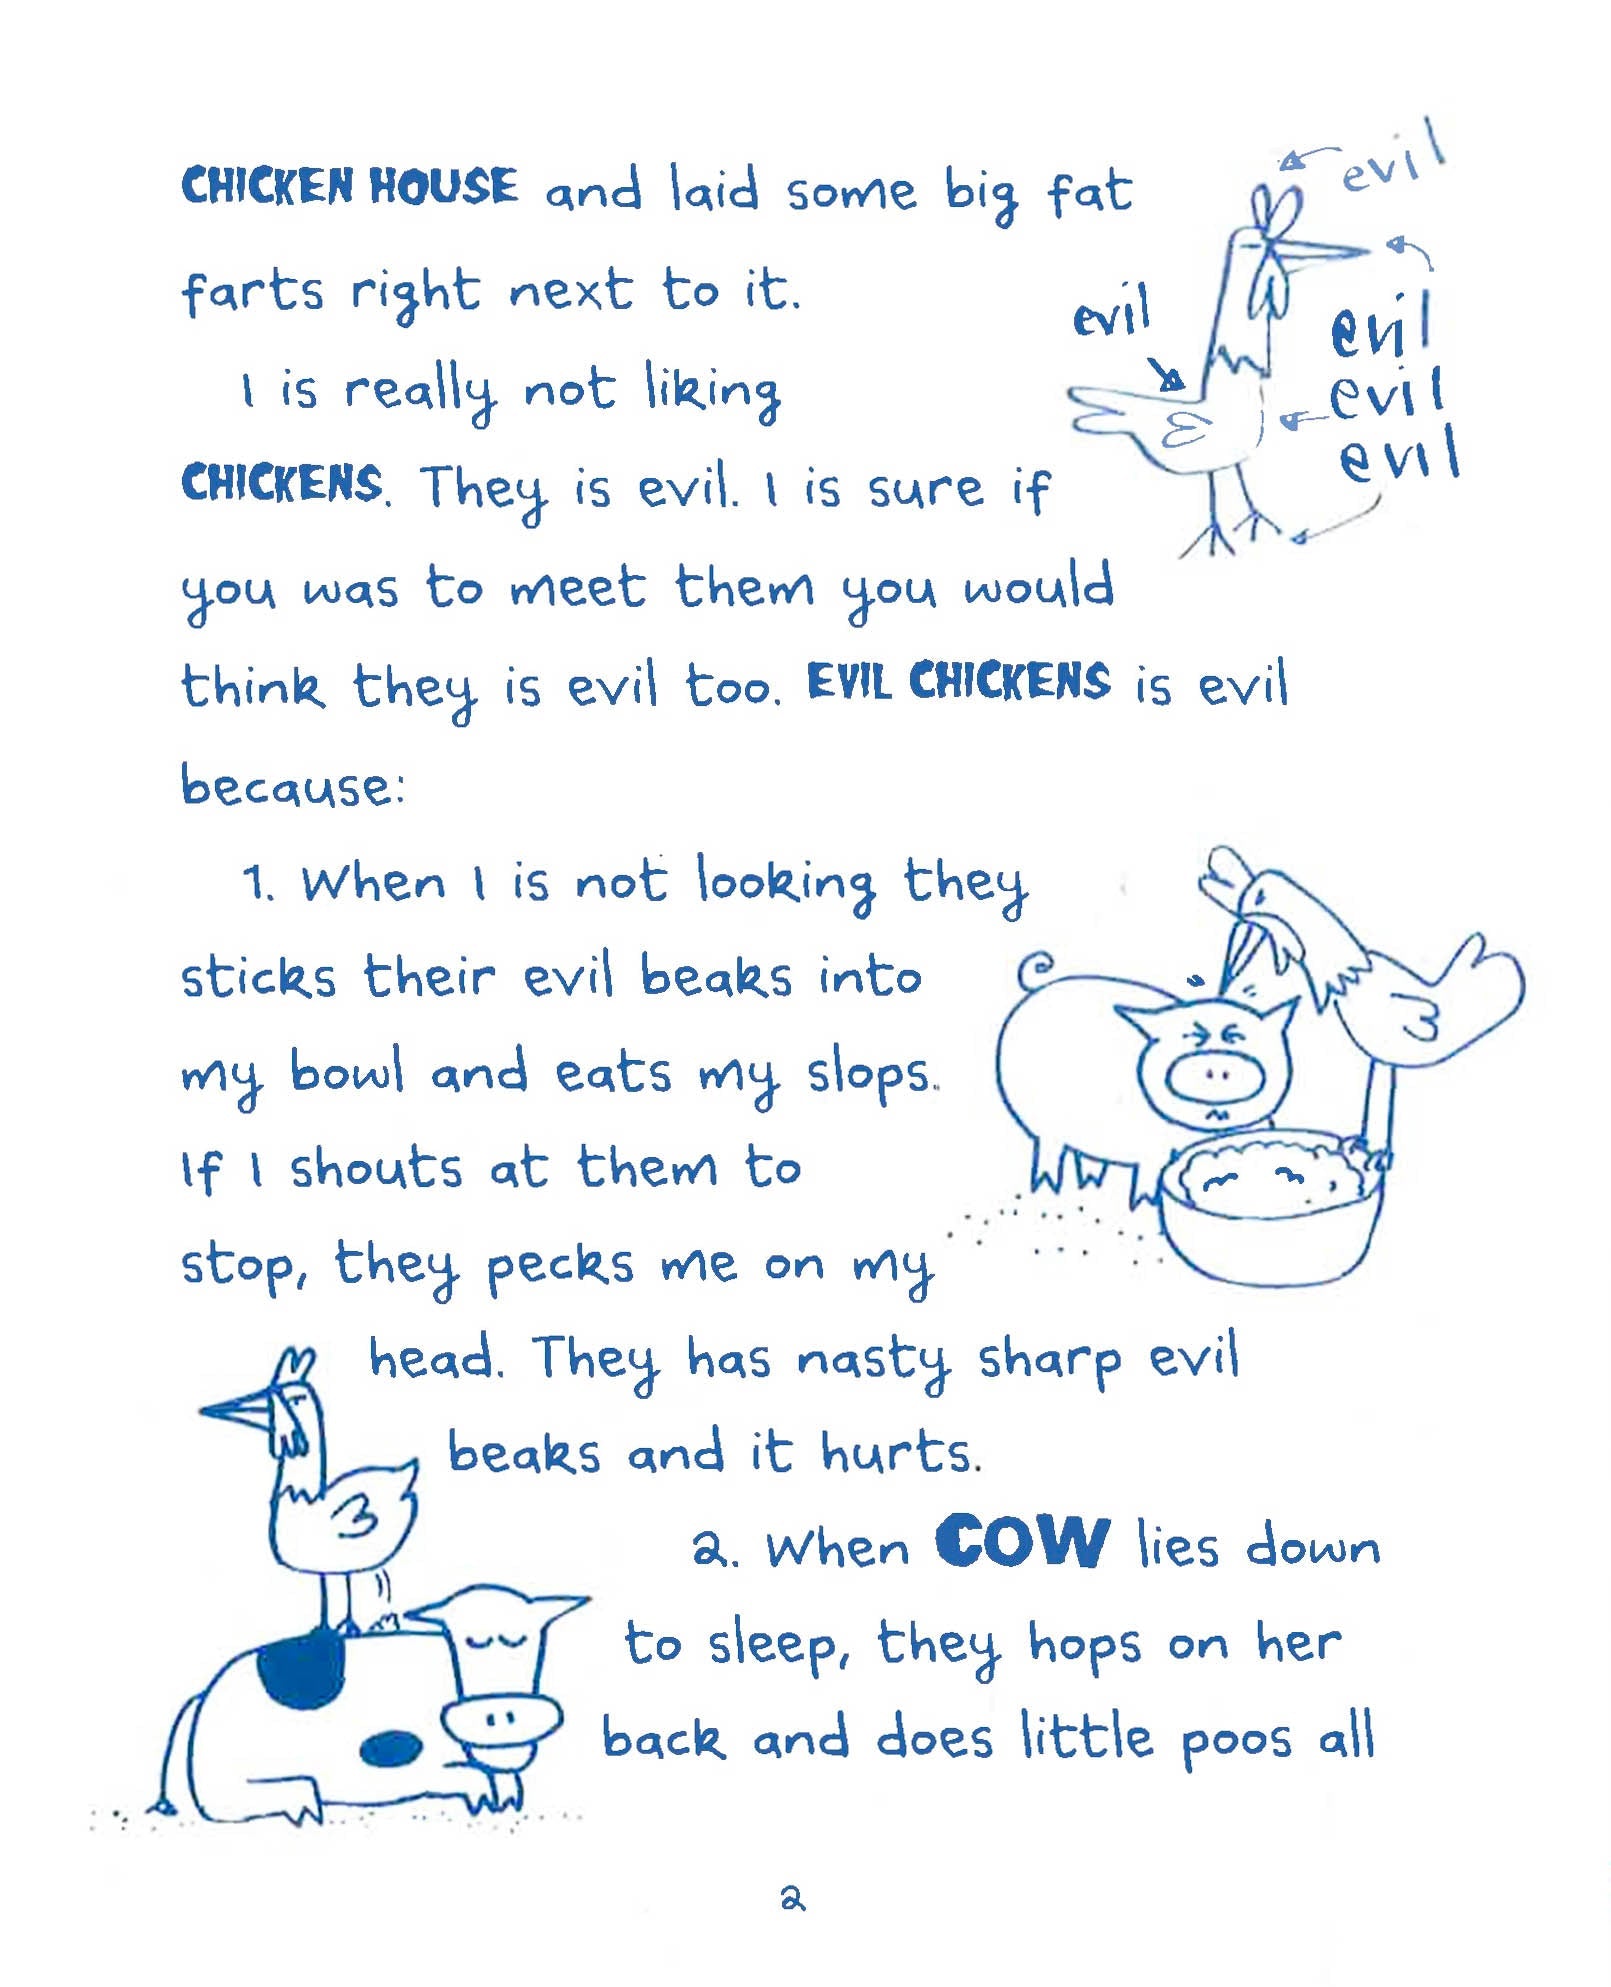 CHICKEN HOUSE and laid some big fat
farts right next to it.
I is really not liking
CHICKENS. They is evil. I is sure if
you was to meet them you would
think they is evil too. EVIL CHICKENS is evil
because:
evil
evil
evil
evil
evil
1. When I is not looking they
sticks their evil beaks into
my bowl and eats my slops.
If I shouts at them to
stop, they pecks me on my
head. They has nasty sharp evil
beaks and it hurts.
2. When COW lies down
to sleep, they hops on her
back and does little poos all
2